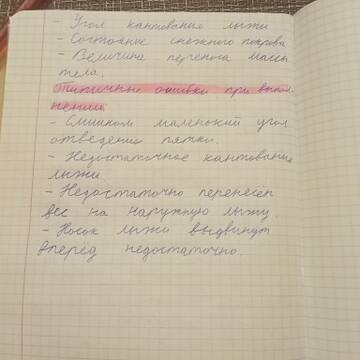 - Угол кантования лыжи
- Состояние снежного покрова
- Величина переноса массы
тела.
Типичные ошибки при выпол-
нении
- Слишком маленький угол
отведения пятки.
- Недостаточное кантование
лыжи
- Недостаточно перенесён
вес на наружную лыжу
- Носок лыжи выдвинут
вперёд недостаточно.